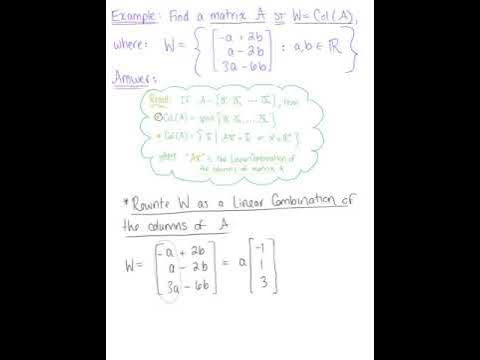 Example: Find a matrix A st W = Col(A),
where: W = { [-a + 2b
a - 2b
3a - 6b] : a,b ∈ ℝ }
Answer:
Recall: If A = [
Col(A) = span{
Col(A) = {
"Ax" is the Linear Combination of
the columns of matrix A
*Rewrite W as a Linear Combination of
the columns of A
W = [-a + 2b
a - 2b
3a - 6b] = a [-1
1
3]